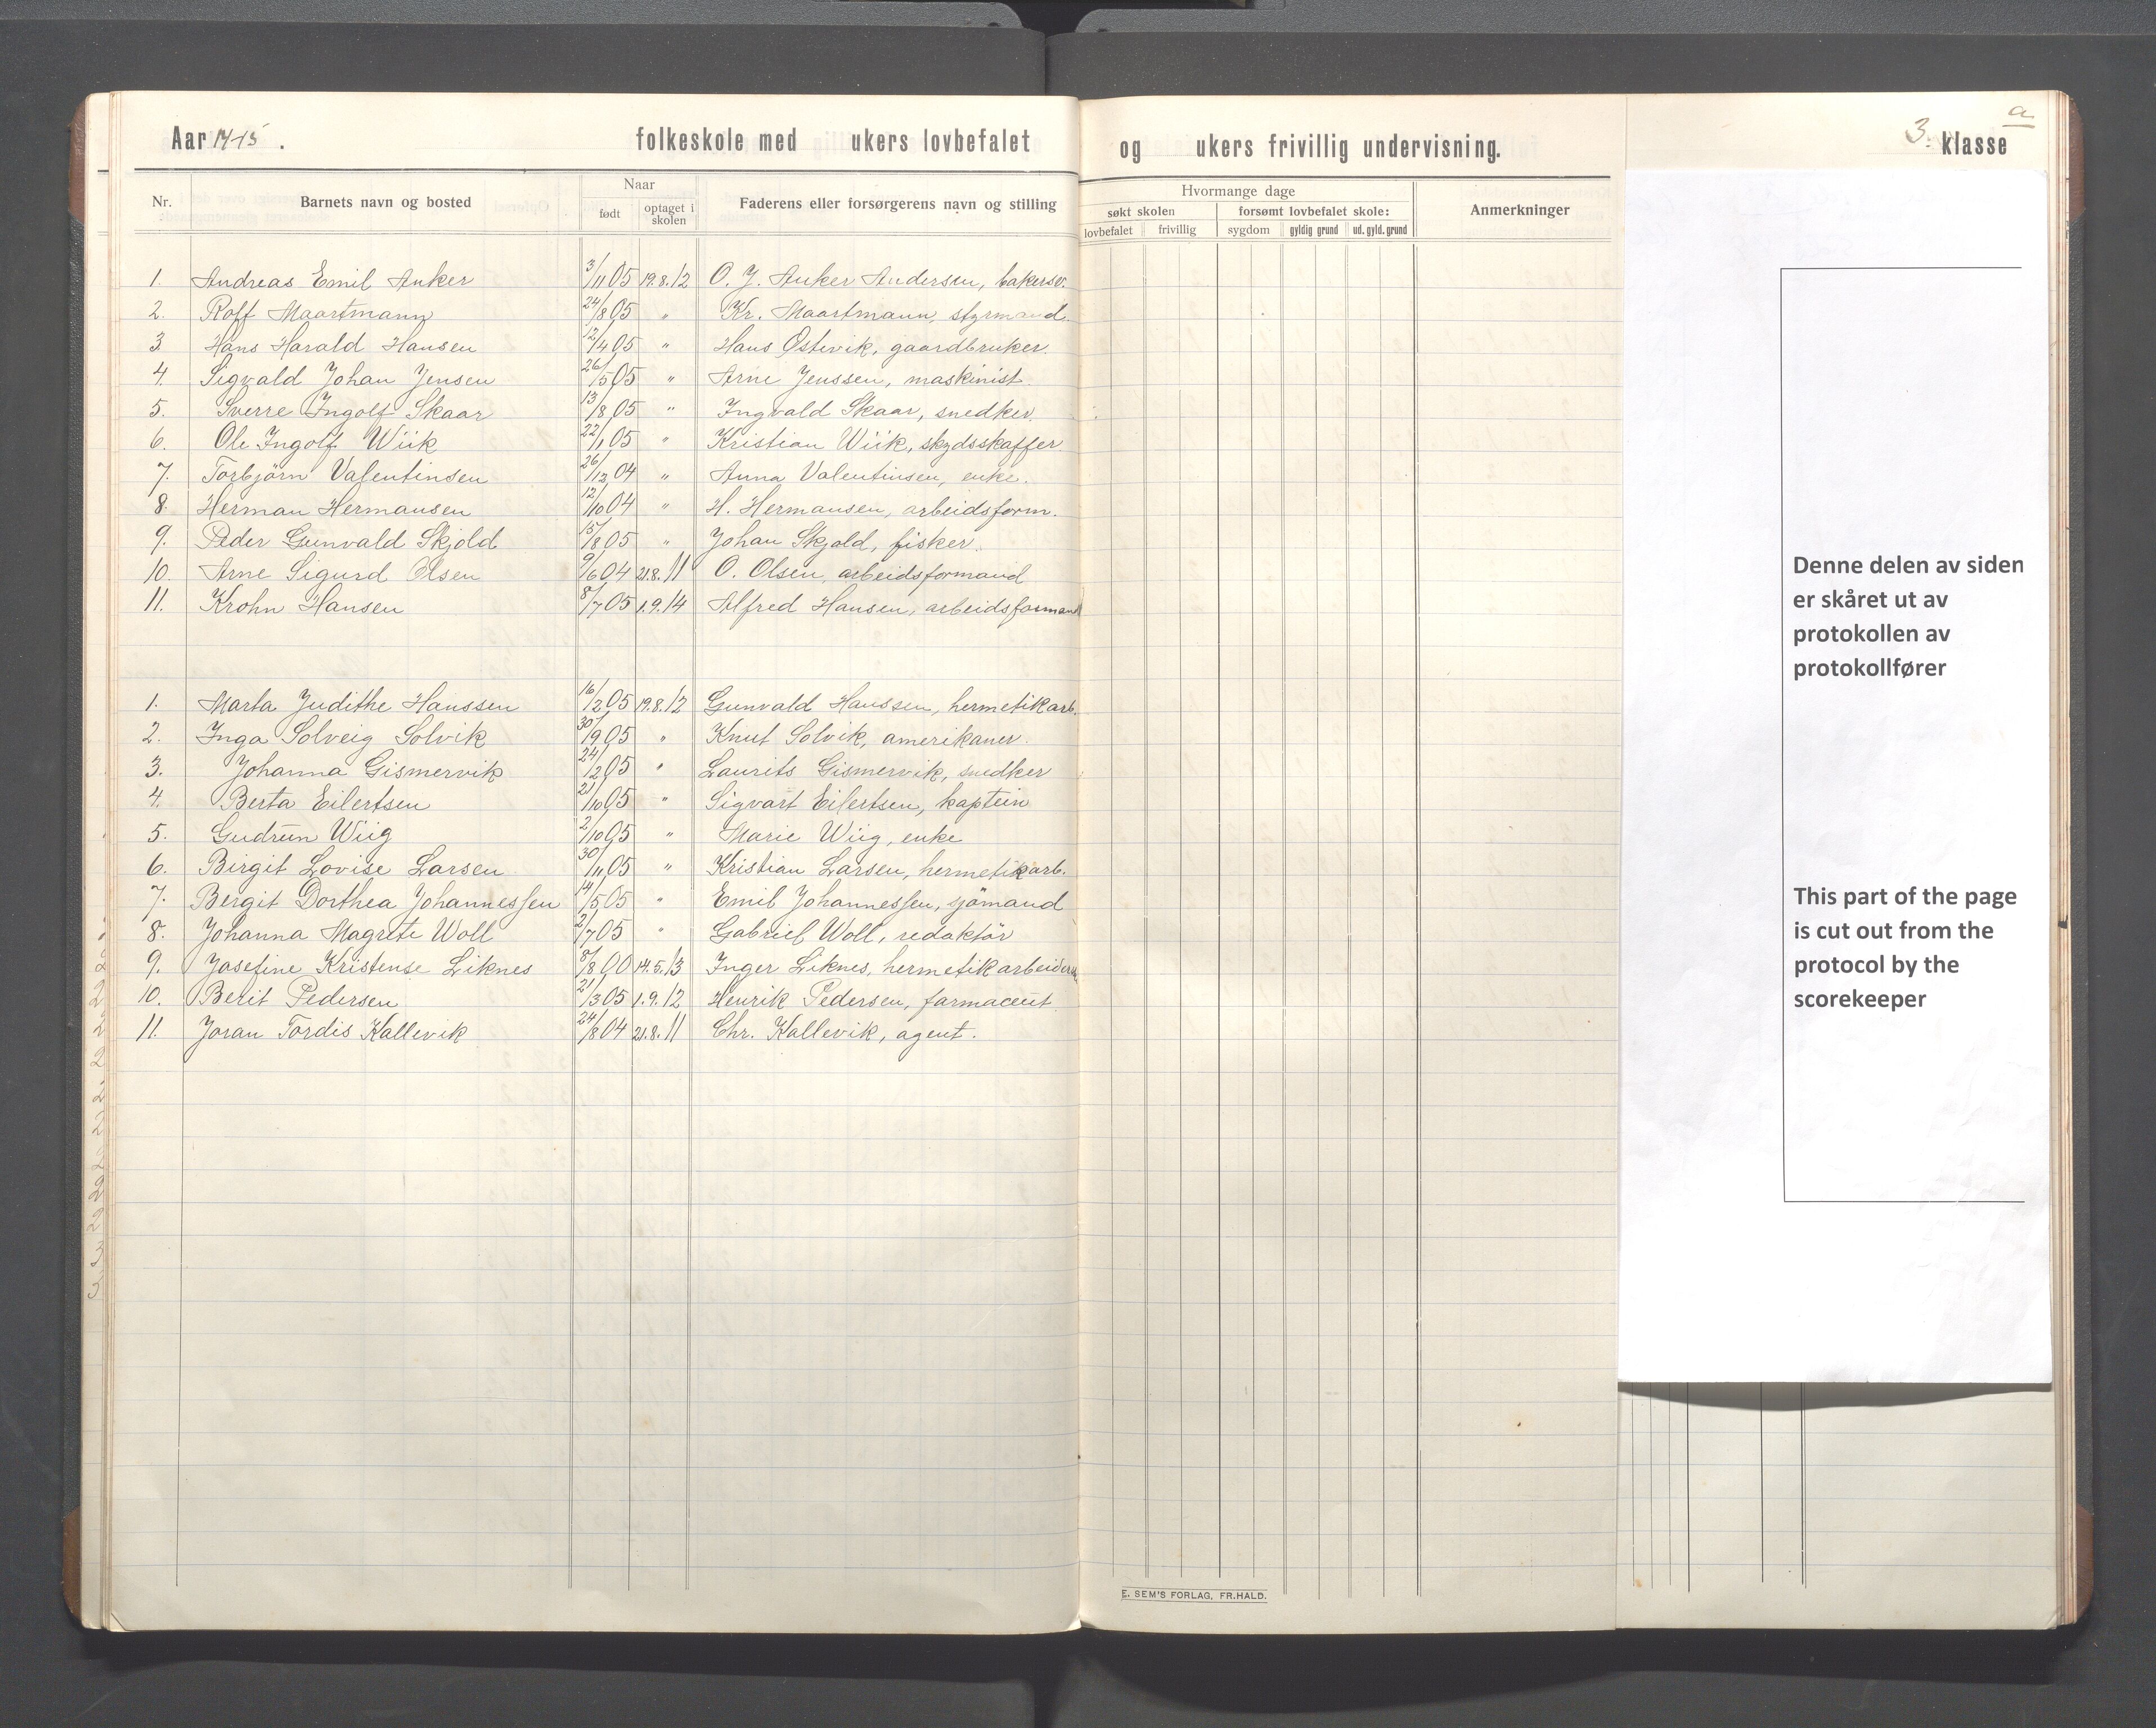 Aar 14-15. folkeskole med ukers lovbefalet og ukers frivillig undervisning. 3. a klasse
Nr. Barnets navn og bosted Naar født optaget i skolen Faderens eller forsørgerens navn og stilling Hvormange dage søkt skolen lovbefalet frivillig forsømt lovbefalet skole: sygdom gyldig grund ud. gyld. grund Anmerkninger
1. Andreas Emil Anker 3/11 05 19.8.12 O. J. Anker Andersen, bakersv.
2. Roff Maartmann 24/8 05 " Kr. Maartmann, styrmand.
3. Hans Harald Hansen 12/4 05 " Hans Østevik, gaardbruker.
4. Sigvald Johan Jensen 26/5 05 " Arne Jenssen, maskinist.
5. Sverre Ingolf Skaar 13/8 05 " Ingvald Skaar, snedker.
6. Ole Ingolf Wiik 22/1 05 " Kristian Wiik, skydsskaffer.
7. Torbjørn Valentinsen 26/12 04 " Anna Valentinsen, enke.
8. Herman Hermansen 12/10 04 " H. Hermansen, arbeidsform.
9. Peder Gunvald Skjold 15/8 05 " Johan Skjold, fisker.
10. Arne Sigurd Olsen 9/6 04 21.8.11 O. Olsen, arbeidsformand
11. Krohn Hansen 8/7 05 1.9.14 Alfred Hansen, arbeidsformand
1. Marta Judithe Hanssen 16/2 05 19.8.12 Gunvald Hanssen, hermetikarb.
2. Inga Solveig Solvik 30/9 05 " Knut Solvik, amerikaner.
3. Johanna Gismervik 24/2 05 " Laurits Gismervik, snedker
4. Berta Eilertsen 21/10 05 " Sigvart Eilertsen, kaptein
5. Gudrun Wiig 2/10 05 " Marie Wiig, enke
6. Birgit Lovise Larsen 30/11 05 " Kristian Larsen, hermetikarb.
7. Bergit Dorthea Johannessen 14/5 05 " Emil Johannessen, sjömand
8. Johanna Magrete Woll 2/7 05 " Gabriel Woll, redaktör
9. Josefine Kristense Liknes 8/8 00 14.5.13 Inger Liknes, hermetikarbeiderske
10. Berit Pedersen 21/3 05 1.9.12 Henrik Pedersen, farmaceut.
11. Joran Tordis Kallevik 24/8 04 21.8.11 Chr. Kallevik, agent.
E. SEM'S FORLAG, FR.HALD.
Denne delen av siden
er skåret ut av
protokollen av
protokollfører
This part of the page
is cut out from the
protocol by the
scorekeeper